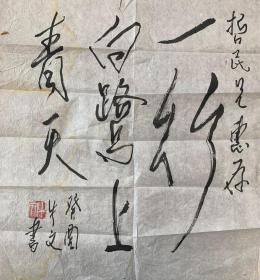 哲民兄惠存
一行
白鹭上
青天
癸酉
牛文
书